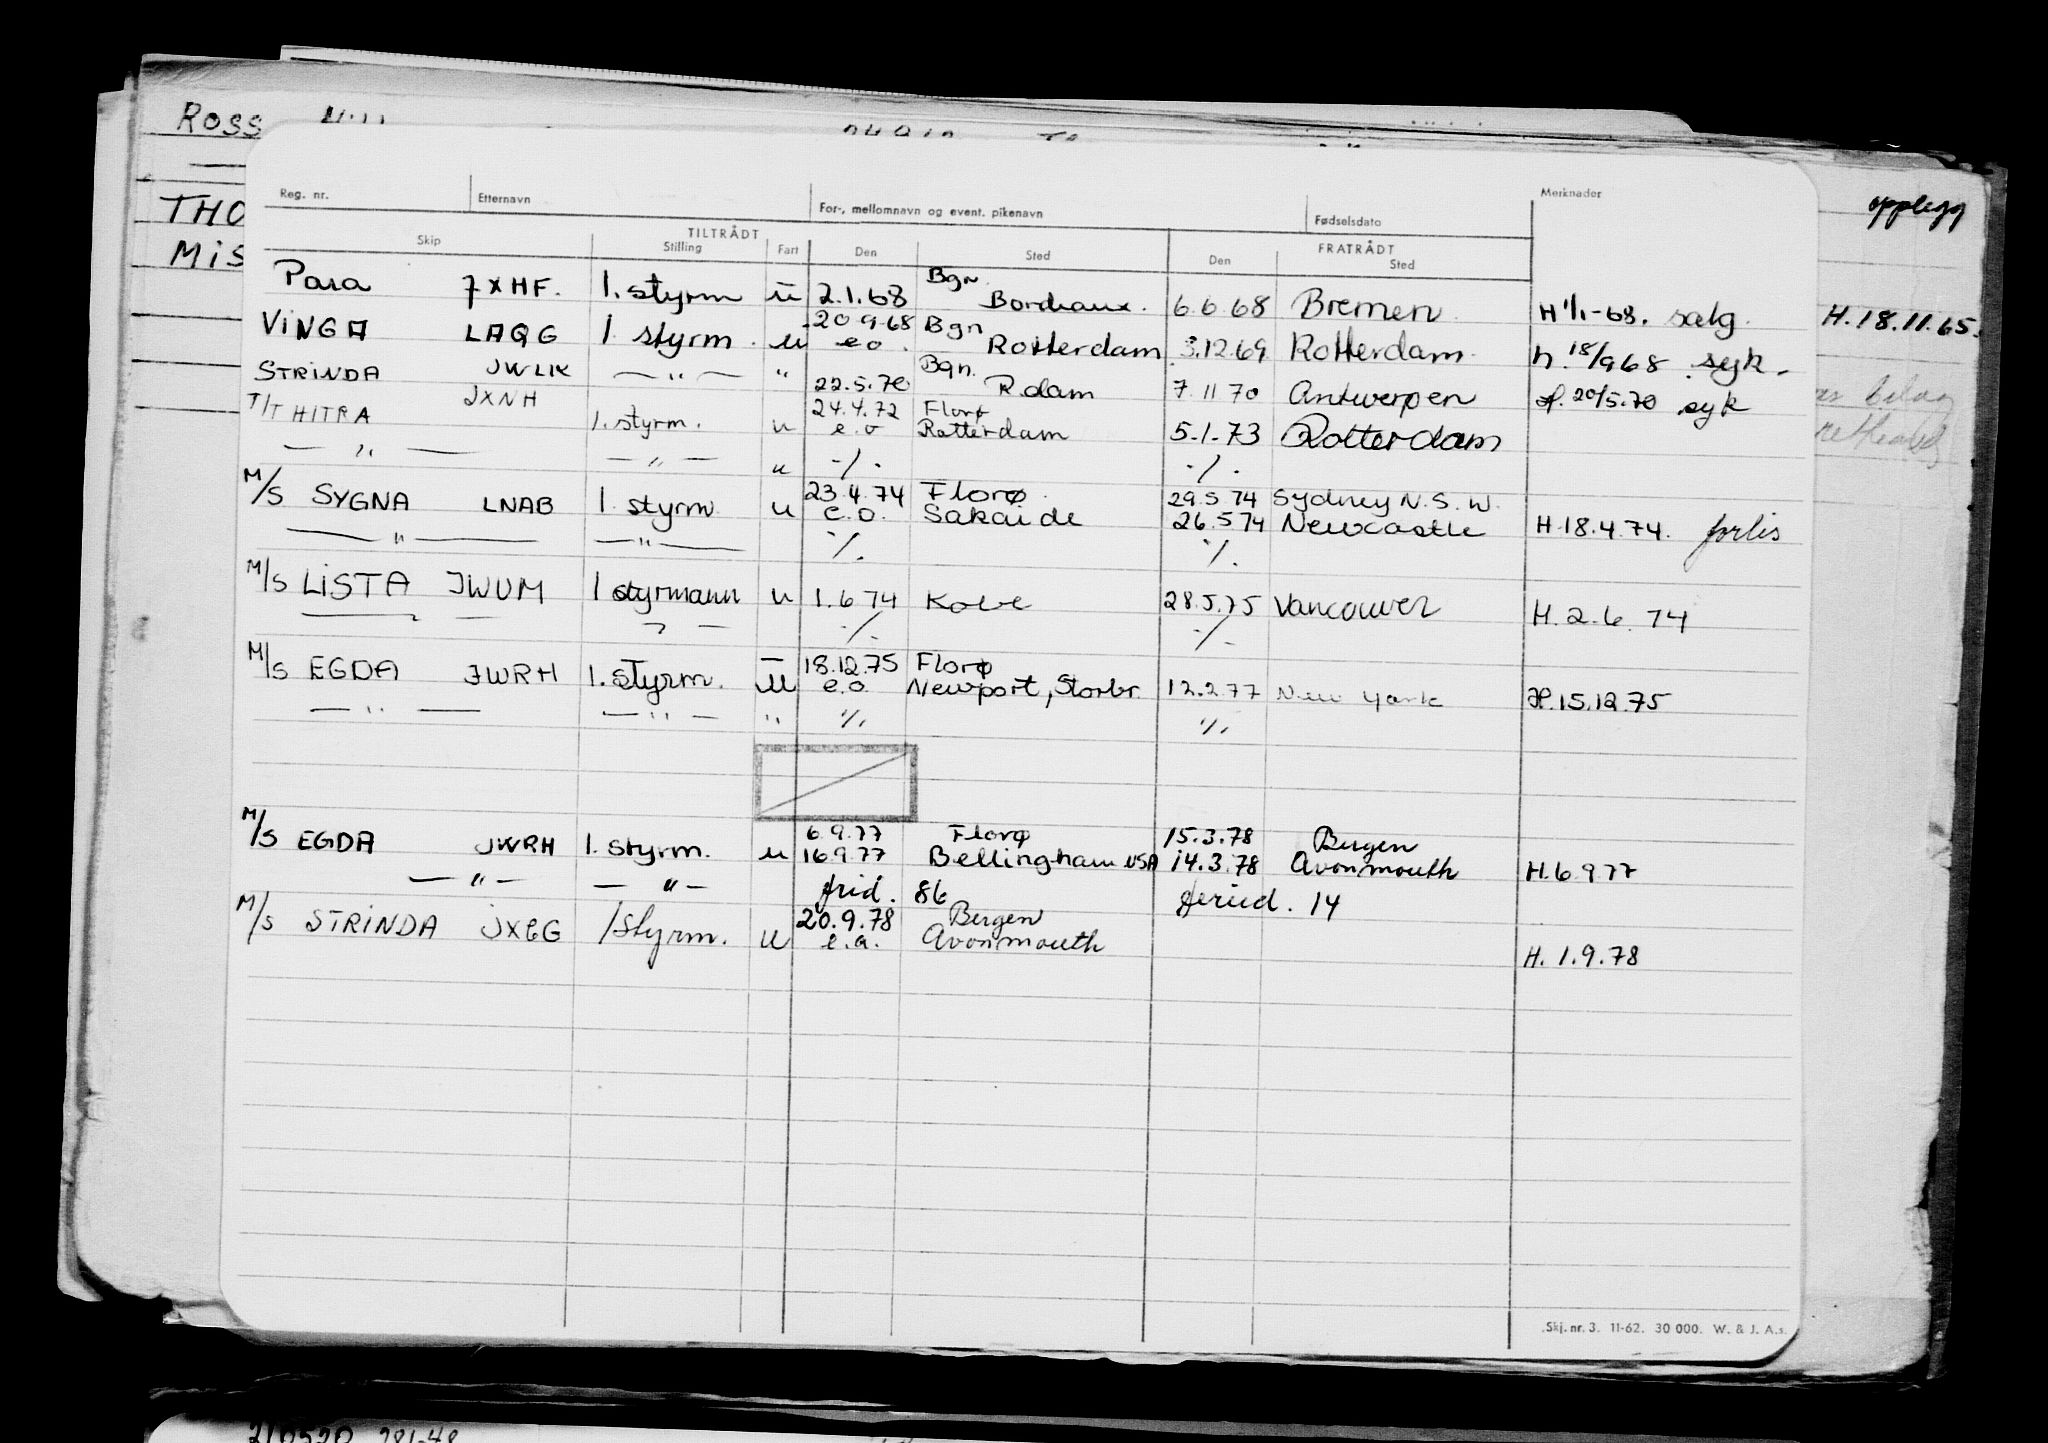 ROSS
THO
MiS
opplegg
H.18.11.65.
Reg. nr. Etternavn For-, mellomnavn og event. pikenavn Fødselsdato Merknader
TILTRÅDT FRATRÅDT
Skip Stilling Fart Den Sted Den Sted
Bgn.
Para JXHF. 1. styrm u 2.1.68 Bordeaux. 6.6 68 Bremen. H 1/1-68. salg.
20 9.68 Bgn
ViNGA LAQG 1 styrm. u e o. Rotterdam 3.12.69 Rotterdam. h. 18/9 68 syk.
Bgn.
STRiNDA JWLK — " — " 22.5.70 R.dam 7.11 70 Antwerpen H. 20/5.70 syk
JXNH 24.4.72 Florø
T/T HITRA 1. styrm. u e.o Rotterdam 5.1.73 Rotterdam
— " — — " — u ./. ./.
23.4.74 Florø 29.5 74 Sydney N.S.W.
M/S SYGNA LNAB 1 styrm. u e.o. Sakaide 26.5 74 Newcastle H.18.4.74. forlis
— " — — " — ./. ./.
M/S LiSTA JWUM 1 styrmann u 1.6 74 Kobe 28.5.75 Vancouver H. 2.6. 74
./. ./.
18.12.75 Florø
M/S EGDA JWRH 1. styrm. u e.o. Newport, Storbr. 12.2.77 New York H.15.12.75
— " — — " — " ./. ./.
6.9.77 Florø 15.3.78 Bergen
M/S EGDA JWRH 1. styrm. u 16.9.77 Bellingham USA 14.3.78 Avonmouth H.6 9 77
— " — — " — frid. 86 feried. 14
20.9.78 Bergen
M/S STRiNDA JXEG 1 styrm. u e.a. Avonmouth
H. 1.9.78
Skj. nr. 3. 11-62. 30 000. W. & J. A.s.